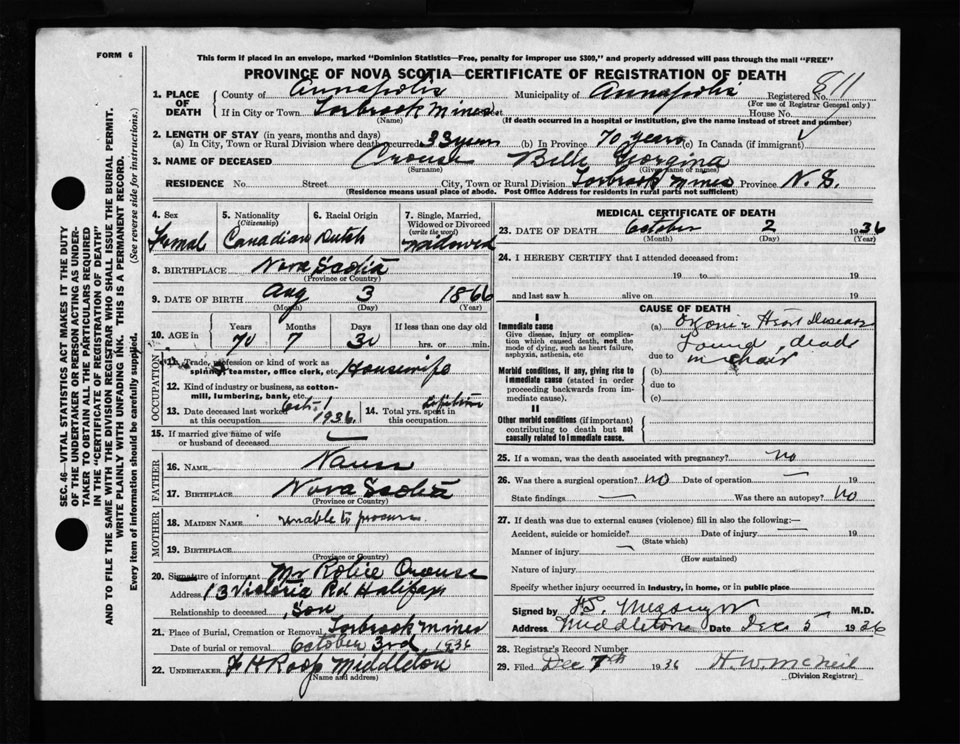 FORM 6
This form if placed in an envelope, marked "Dominion Statistics—Free, penalty for improper use $300," and properly addressed will pass through the mail "FREE"
PROVINCE OF NOVA SCOTIA—CERTIFICATE OF REGISTRATION OF DEATH
811
1. PLACE OF DEATH County of Annapolis Municipality of Annapolis Registered No.
(For use of Registrar General only)
If in City or Town Torbrook Mines Street House No.
(Name) (If death occurred in a hospital or institution, give the name instead of street and number)
2. LENGTH OF STAY (in years, months and days)
(a) In City, Town or Rural Division where death occurred 33 years (b) In Province 70 years (c) In Canada (if immigrant)
3. NAME OF DECEASED Crouse Belle Georgina
(Surname) (Given name or names)
RESIDENCE No. Street City, Town or Rural Division Torbrook Mines Province N. S.
(Residence means usual place of abode. Post Office Address for residents in rural parts not sufficient)
4. Sex Femal
5. Nationality (Citizenship) Canadian
6. Racial Origin Dutch
7. Single, Married, Widowed or Divorced (write the word) Widowed
8. BIRTHPLACE Nova Scotia
(Province or Country)
9. DATE OF BIRTH Aug 3 1866
(Month) (Day) (Year)
10. AGE in Years Months Days If less than one day old
70 7 30 hrs. or min.
OCCUPATION
11. Trade, profession or kind of work as spinner, teamster, office clerk, etc. Housewife
12. Kind of industry or business, as cotton-mill, lumbering, bank, etc.
13. Date deceased last worked at this occupation Oct. 1 1936.
14. Total yrs. spent in this occupation lifetime
15. If married give name of wife or husband of deceased
FATHER
16. NAME Nauss
17. BIRTHPLACE Nova Scotia
(Province or Country)
MOTHER
18. MAIDEN NAME unable to procure.
19. BIRTHPLACE
(Province or Country)
20. Signature of informant Mr Robie Crouse
Address 13 Victoria Rd Halifax
Relationship to deceased Son
21. Place of Burial, Cremation or Removal Torbrook Mines
Date of burial or removal October 3rd 1936
22. UNDERTAKER F H Roop Middleton
(Name and address)
MEDICAL CERTIFICATE OF DEATH
23. DATE OF DEATH October 2 1936
(Month) (Day) (Year)
24. I HEREBY CERTIFY that I attended deceased from:
19 to 19
and last saw h alive on 19
CAUSE OF DEATH
I
Immediate cause (a) Organic Heart Disease
Give disease, injury or complication which caused death, not the mode of dying, such as heart failure, asphyxia, asthenia, etc
due to Found dead in chair
Morbid conditions, if any, giving rise to immediate cause (stated in order proceeding backwards from immediate cause).
(b)
due to
(c)
II
Other morbid conditions (if important) contributing to death but not causally related to immediate cause.
25. If a woman, was the death associated with pregnancy? no
26. Was there a surgical operation? no Date of operation
State findings Was there an autopsy? No
27. If death was due to external causes (violence) fill in also the following:—
Accident, suicide or homicide? Date of injury 19
(State which)
Manner of injury
(How sustained)
Nature of injury
Specify whether injury occurred in industry, in home, or in public place
Signed by M.D.
Address Middleton Date Dec 5 1936
28. Registrar's Record Number
29. Filed Dec 7th 1936 H. W. McNeil
(Division Registrar)
SEC. 46—VITAL STATISTICS ACT MAKES IT THE DUTY
OF THE UNDERTAKER OR PERSON ACTING AS UNDER-
TAKER TO OBTAIN ALL THE PARTICULARS REQUIRED
IN THE "CERTIFICATE OF REGISTRATION OF DEATH"
AND TO FILE THE SAME WITH THE DIVISION REGISTRAR WHO SHALL ISSUE THE BURIAL PERMIT.
WRITE PLAINLY WITH UNFADING INK. THIS IS A PERMANENT RECORD.
Every item of information should be carefully supplied. (See reverse side for instructions.)